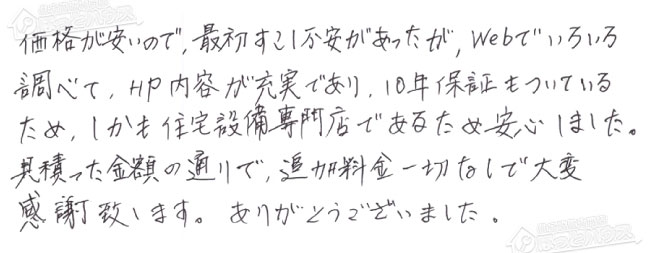 価格が安いので,最初すこし不安があったが,Webでいろいろ
調べて,HP内容が充実であり,10年保証もついている
ため,しかも住宅設備専門店であるため安心しました。
見積った金額の通りで,追加料金一切なしで大変
感謝致します。ありがとうございました。